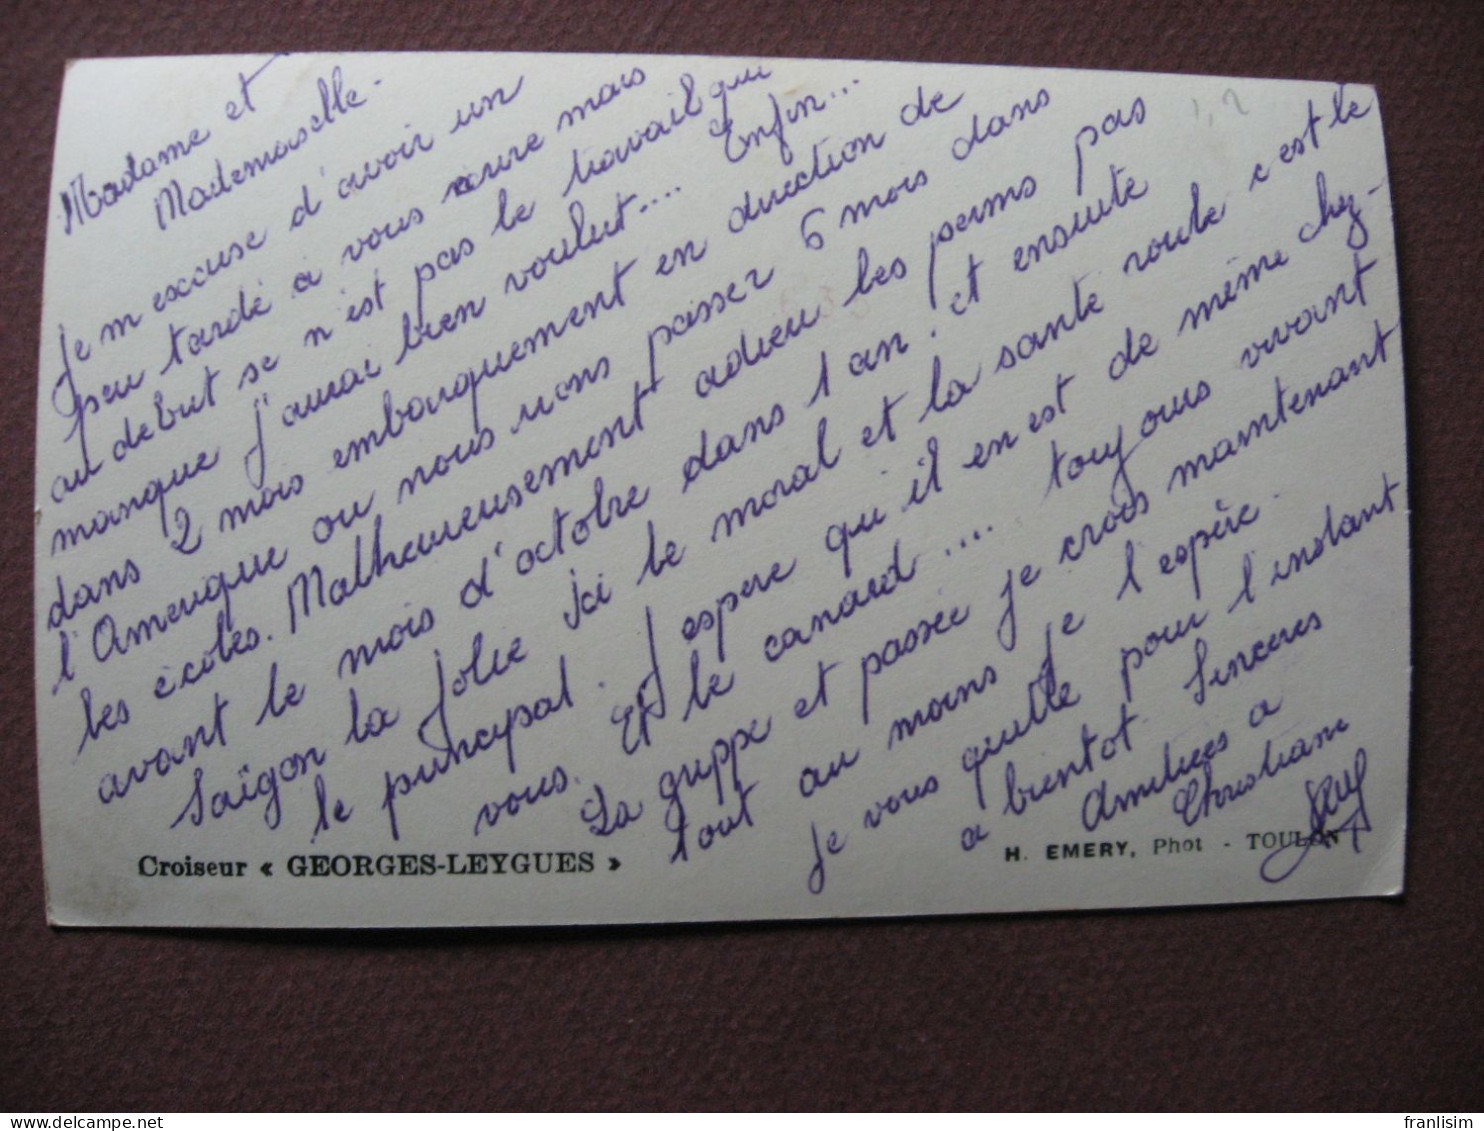 Madame et
Mademoiselle.
Je m'excuse d'avoir un
peu tardé à vous écrire mais
au debut se n'est pas le travail qui
manque j'aurai bien voulut.... Enfin...
dans 2 mois embarquement en direction de
l'Amerique ou nous irons passer 6 mois dans
les écoles. Malheureusement adieu les perms pas
avant le mois d'octobre dans 1 an. et ensuite
Saïgon la Jolie Ici le moral et la santé route c'est le
le principal. J'espere qu'il en est de même chez
vous. Et le canard .... toujours vivant
La grippe et passée je crois maintenant
tout au moins je l'espère.
Je vous quitte pour l'instant
a bientot. Sinceres
Amitiees a
Christiane
Croiseur « GEORGES-LEYGUES »
H. EMERY, Phot - TOULON
1,2
franlisim